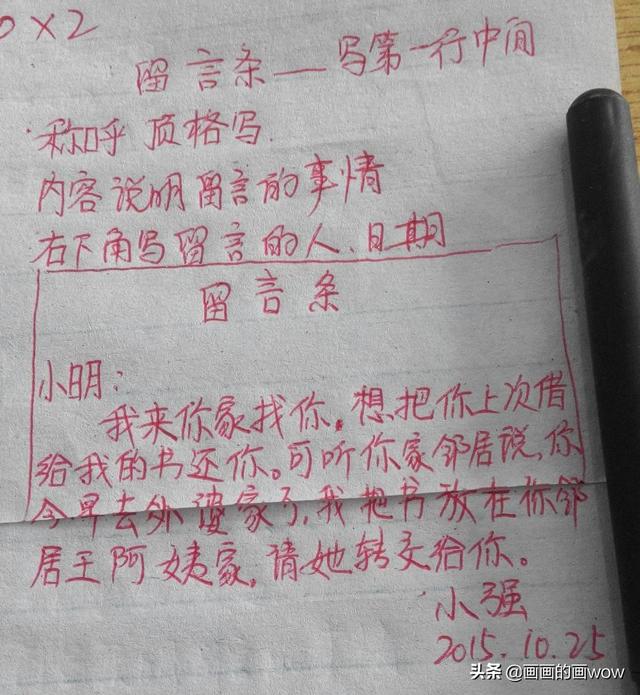 0×2
留言条—写第一行中间
称呼 顶格写.
内容说明留言的事情
右下角写留言的人、日期
留言条
小明：
我来你家找你。想把你上次借
给我的书还你。可听你家邻居说,你
今早去外婆家了,我把书放在你邻
居王阿姨家,请她转交给你。
小强
2015.10.25
头条 @画画的画wow